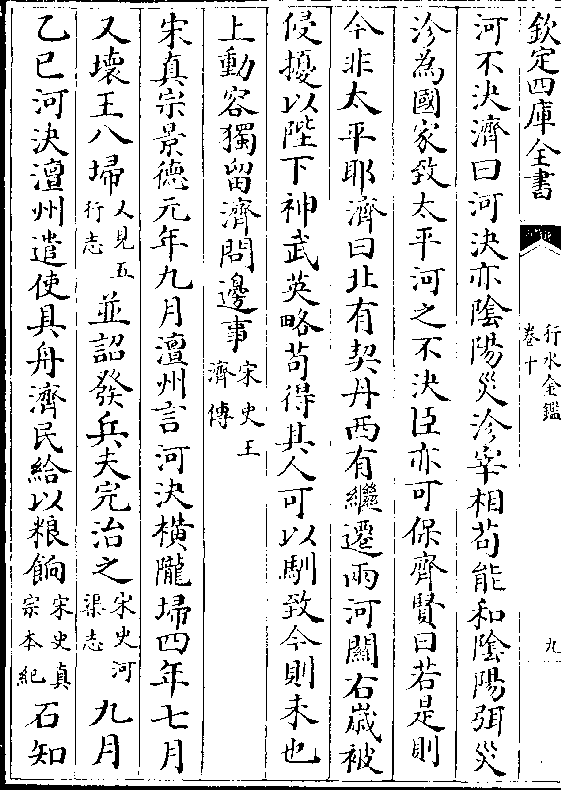 欽定四庫全書
行水金鑑
卷十
九
河不決濟曰河決亦陰陽災沴宰相苟能和陰陽弭災
沴為國家致太平河之不決臣亦可保齊賢曰若是則
今非太平耶濟曰北有契丹西有繼遷兩河關右嵗被
侵擾以陛下神武英略苟得其人可以馴致今則未也
上動容獨留濟問邊事宋史王濟傳
宋真宗景德元年九月澶州言河決橫隴埽四年七月
又壞王八埽又見五行志並詔發兵夫完治之宋史河渠志九月
乙巳河決澶州遣使具舟濟民給以粮餉宋史真宗本紀石知